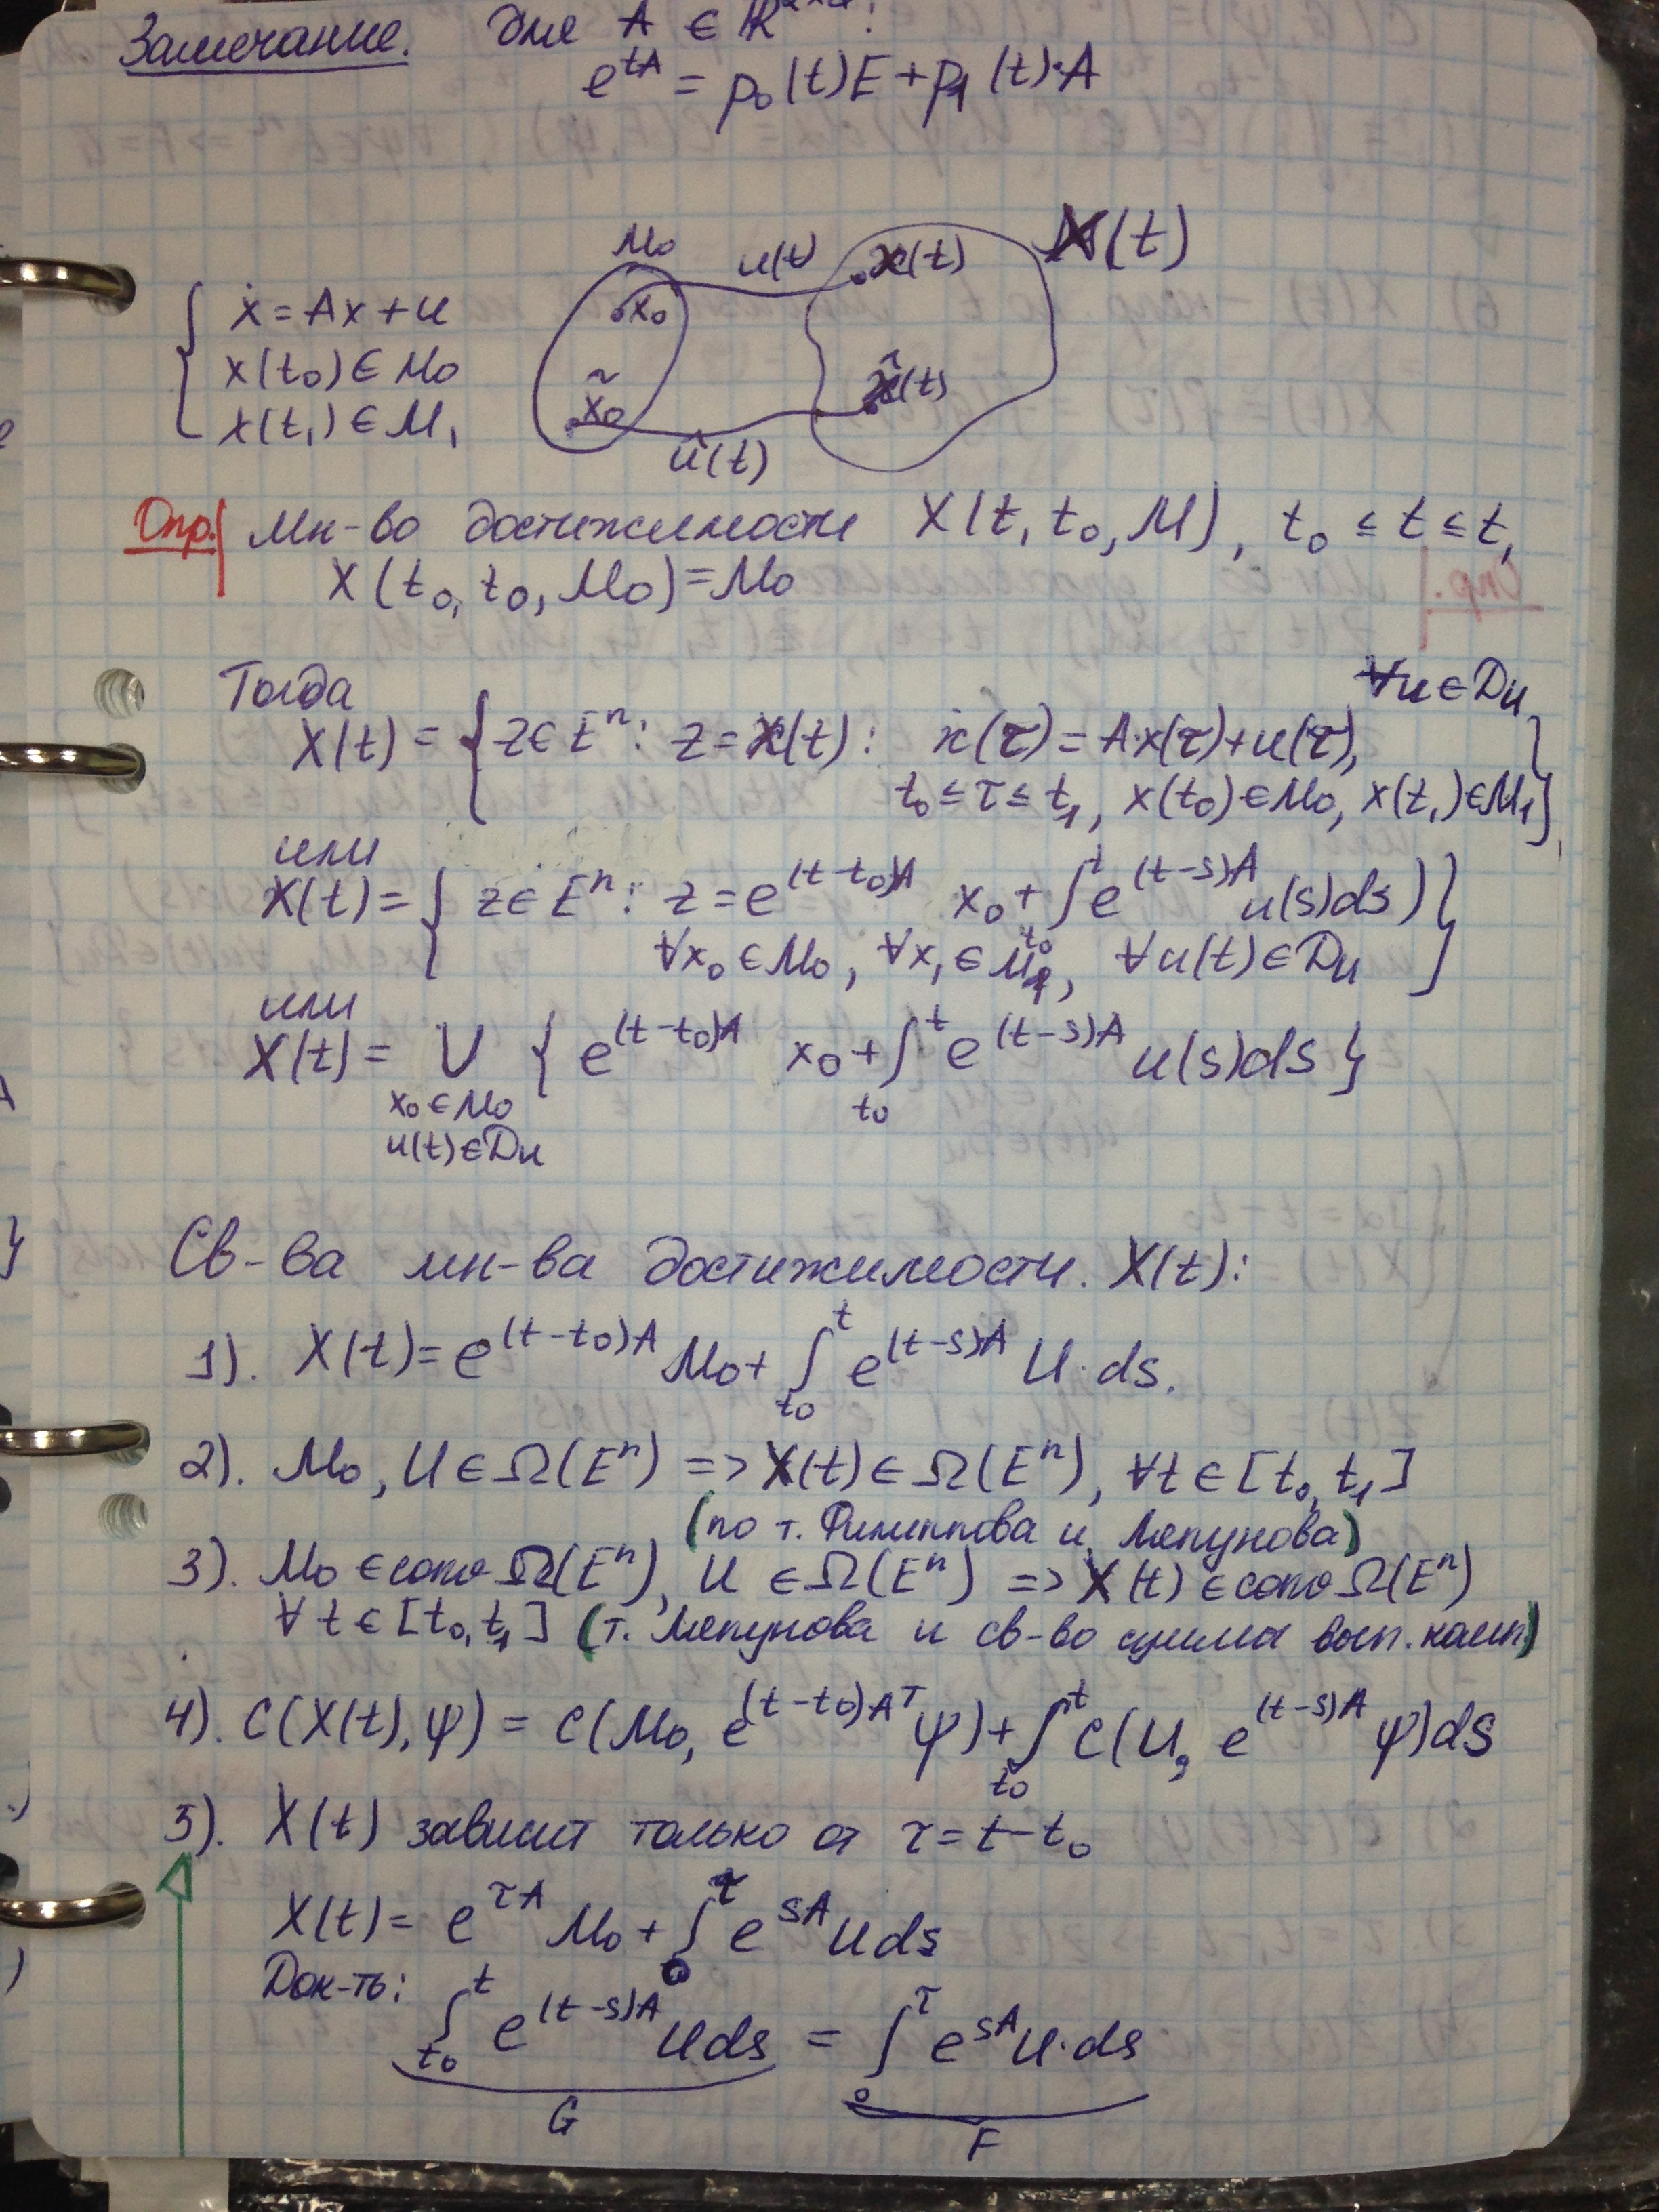 Замечание. Для A ∈ ℝ²ˣ²:
e^{tA} = p₀(t)E + p₁(t)·A
M₀ u(t) x(t) X(t)
x₀
{ ẋ = Ax + u
x(t₀) ∈ M₀
x(t₁) ∈ M₁
x̃₀ x̃(t)
ũ(t)
Опр. Мн-во достижимости X(t, t₀, M), t₀ ≤ t ≤ t₁
X(t₀, t₀, M₀) = M₀
Тогда ∀u ∈ D_u
X(t) = { z ∈ Eⁿ: z = x(t): ẋ(τ) = A·x(τ) + u(τ),
t₀ ≤ τ ≤ t₁, x(t₀) ∈ M₀, x(t₁) ∈ M₁ },
или
X(t) = { z ∈ Eⁿ: z = e^{(t-t₀)A} x₀ + ∫_{t₀}^{t} e^{(t-s)A} u(s)ds) }
∀x₀ ∈ M₀, ∀x₁ ∈ M₁, ∀u(t) ∈ D_u
или
X(t) = ∪ { e^{(t-t₀)A} x₀ + ∫_{t₀}^{t} e^{(t-s)A} u(s)ds }
x₀ ∈ M₀
u(t) ∈ D_u
Св-ва мн-ва достижимости. X(t):
1). X(t) = e^{(t-t₀)A} M₀ + ∫_{t₀}^{t} e^{(t-s)A} U·ds.
2). M₀, U ∈ Ω(Eⁿ) => X(t) ∈ Ω(Eⁿ), ∀t ∈ [t₀, t₁]
(по т. Филиппова и Ляпунова)
3). M₀ ∈ conv Ω(Eⁿ), U ∈ Ω(Eⁿ) => X(t) ∈ conv Ω(Eⁿ)
∀t ∈ [t₀, t₁] (т. Ляпунова и св-во суммы вып. комп)
4). c(X(t), ψ) = c(M₀, e^{(t-t₀)Aᵀ} ψ) + ∫_{t₀}^{t} c(U, e^{(t-s)A} ψ)ds
5). X(t) зависит только от τ = t - t₀
X(t) = e^{τA} M₀ + ∫_{0}^{τ} e^{sA} U ds
Док-ть:
∫_{t₀}^{t} e^{(t-s)A} U ds = ∫_{0}^{τ} e^{sA} U·ds
G F